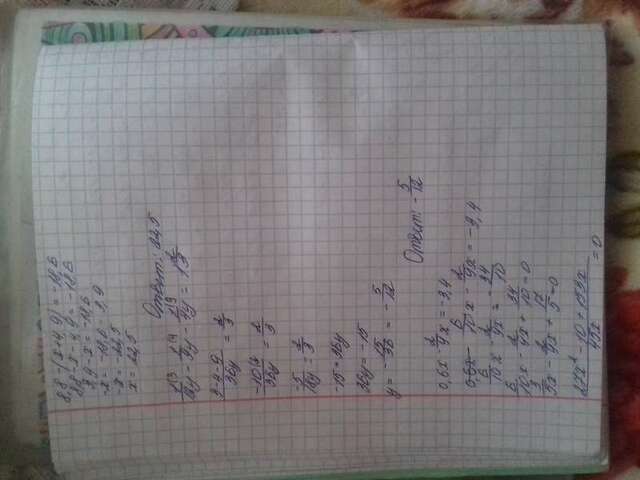 8,8-(x+4,9)=-18,6
8,8-x-4,9=-18,6
3,9-x=-18,6
-x=-18,6-3,9
-x=-22,5
x=22,5
Ответ: 22,5
1/12y - 1/9y - 1/4y = 1 2/3
3-4-9/36y = 2/3
-10/36y = 2/3
-5/18y = 2/3
-15=36y
36y=-15
y=-15/36=-5/12
Ответ: -5/12
0,6x-2/9x=-3,4
6/10x-2/9x=-3,4
6/10x-2/9x=-34/10
6/10x-2/9x+34/10=0
3/5x-2/9x+17/5=0
27x²-10+153x/45x=0